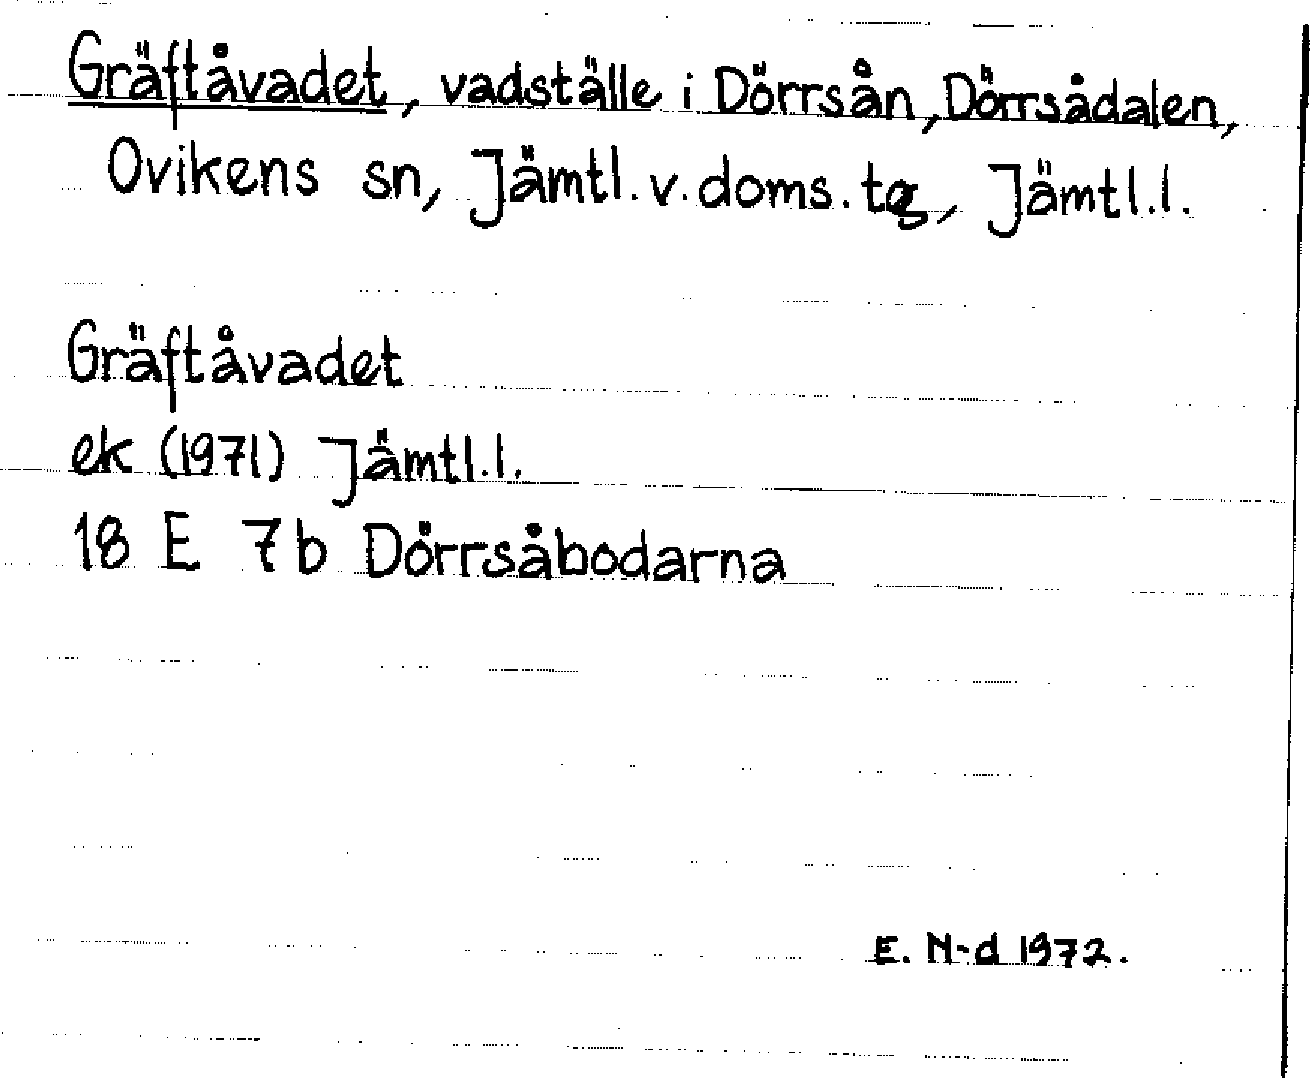 Gräftåvadet, vadställe i Dörrsån, Dörrsådalen,
Ovikens sn, Jämtl.v.doms.tg, Jämtl.l.
Gräftåvadet
ek (1971) Jämtl.l.
18 E 7b Dörrsåbodarna
E. N-d 1972.